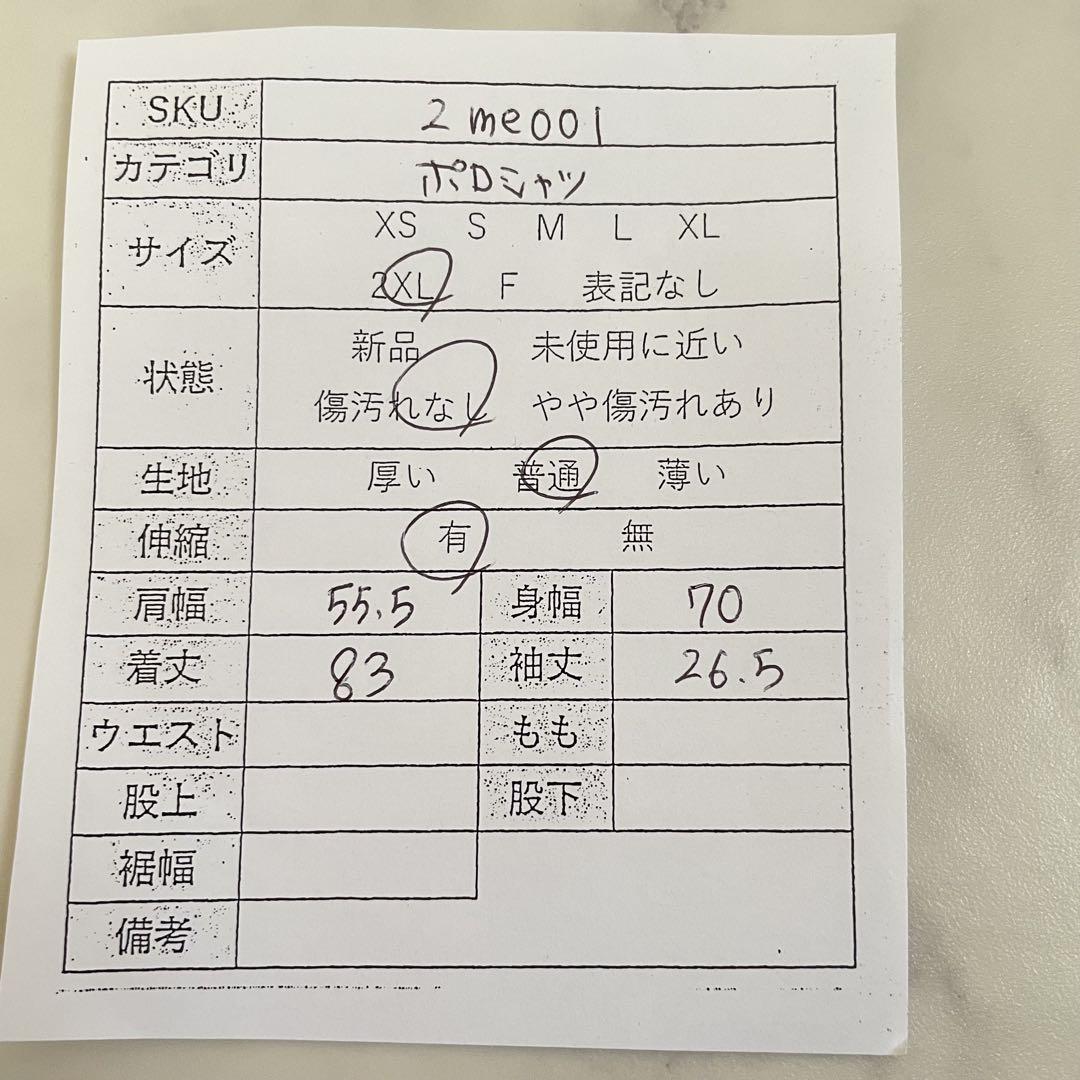 SKU 2me001
カテゴリ ポロシャツ
サイズ XS S M L XL
2XL F 表記なし
状態 新品 未使用に近い
傷汚れなし やや傷汚れあり
生地 厚い 普通 薄い
伸縮 有 無
肩幅 55.5 身幅 70
着丈 83 袖丈 26.5
ウエスト もも
股上 股下
裾幅
備考